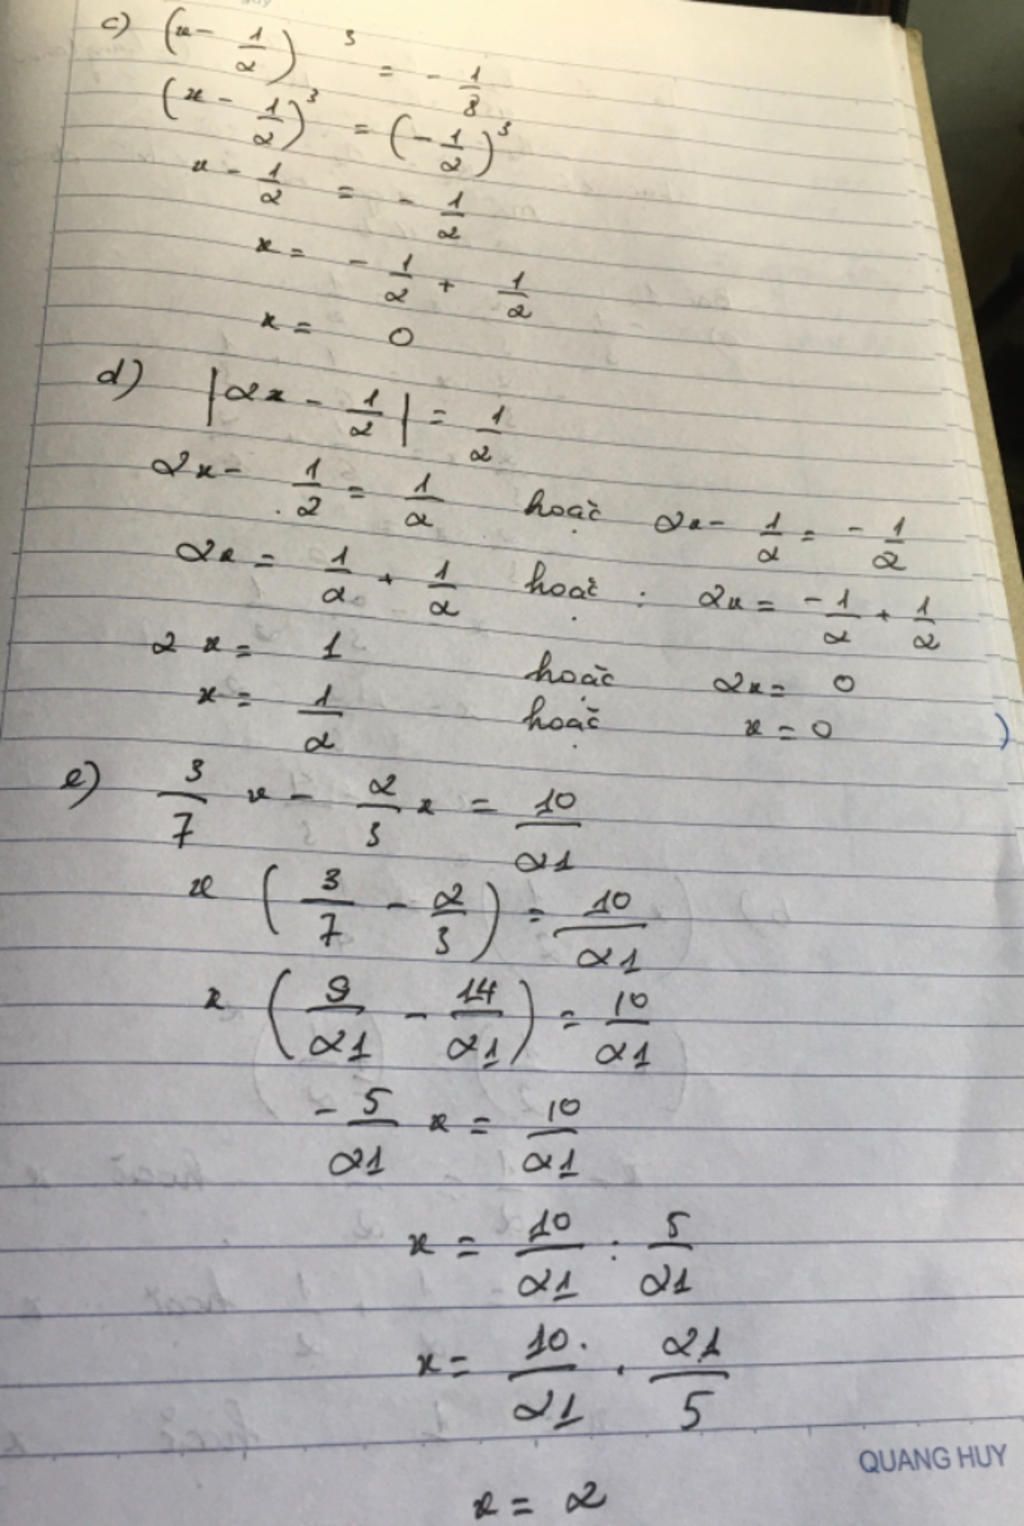 c) (x - 1/2)^3 = - 1/8
(x - 1/2)^3 = (- 1/2)^3
x - 1/2 = - 1/2
x = - 1/2 + 1/2
x = 0
d) |2x - 1/2| = 1/2
2x - 1/2 = 1/2 hoặc 2x - 1/2 = - 1/2
2x = 1/2 + 1/2 hoặc : 2x = -1/2 + 1/2
2x = 1 hoặc 2x = 0
x = 1/2 hoặc x = 0
e) 3/7 x - 2/3 x = 10/21
x (3/7 - 2/3) = 10/21
x (9/21 - 14/21) = 10/21
- 5/21 x = 10/21
x = 10/21 : 5/21
x = 10/21 . 21/5
QUANG HUY
x = 2